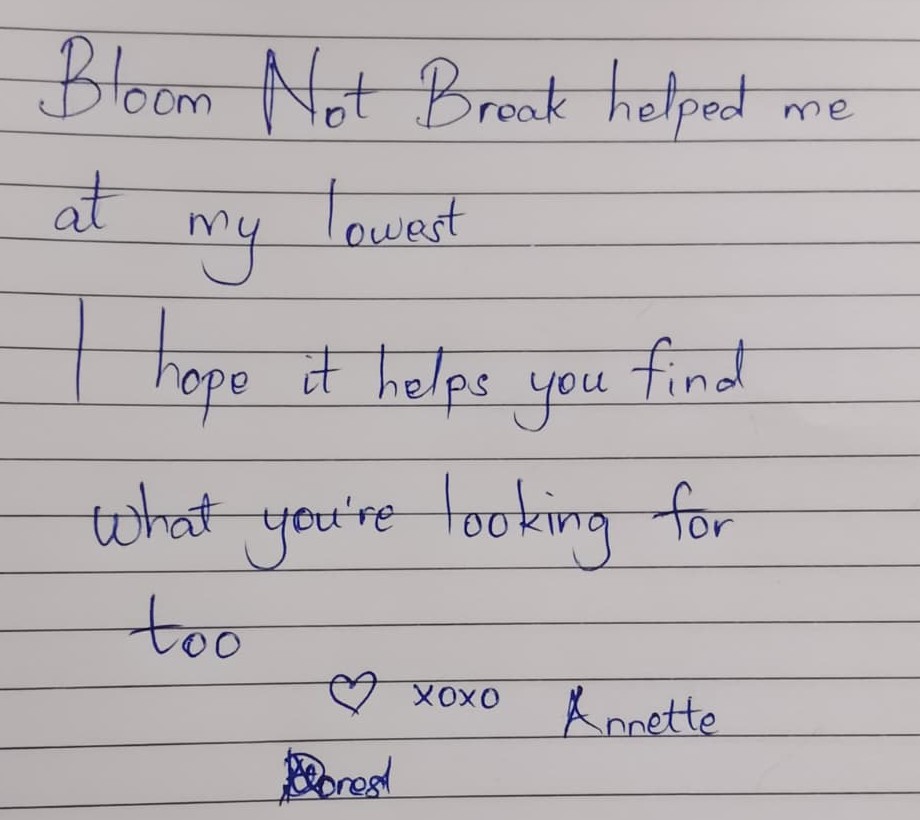 Bloom Not Break helped me
at my lowest
I hope it helps you find
what you're looking for
too
♡ xoxo Annette